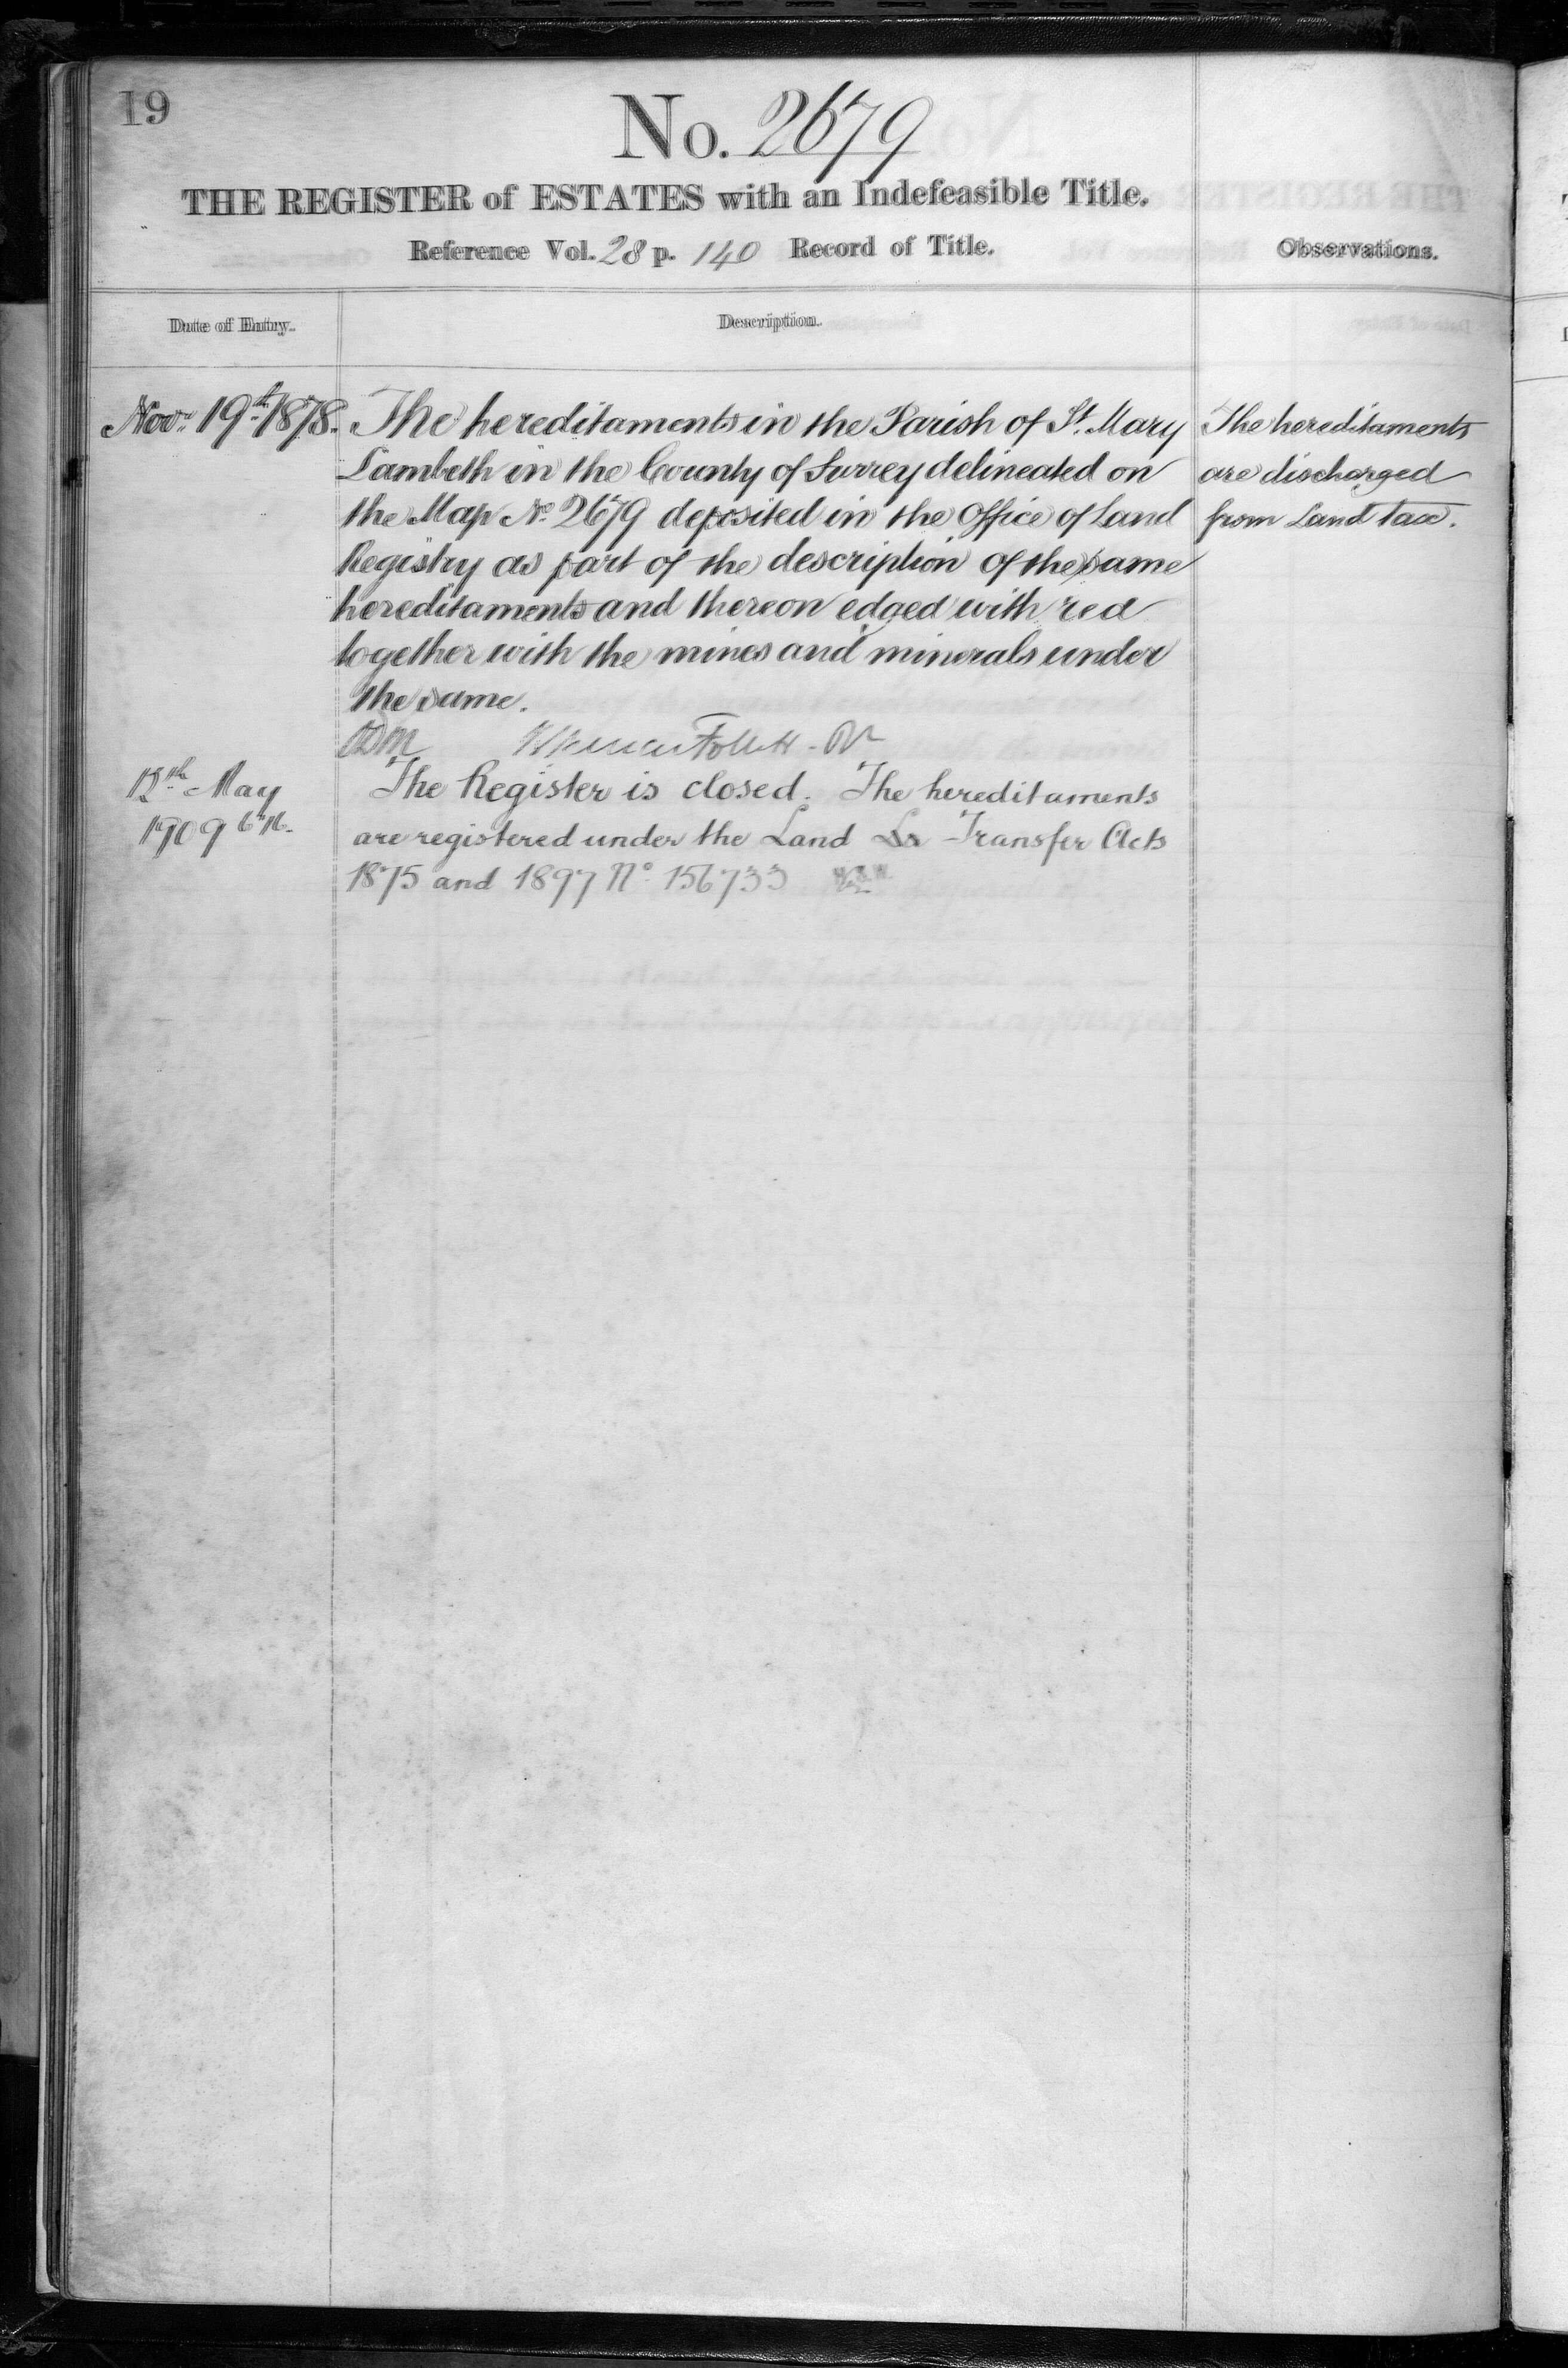 19
No. 2679
THE REGISTER of ESTATES with an Indefeasible Title.
Reference Vol. 28 p. 140 Record of Title.
Observations.
Date of Entry.
Description.
Novr 19th 1878.
The hereditaments in the Parish of St. Mary
Lambeth in the County of Surrey delineated on
the Map No. 2679 deposited in the Office of Land
Registry as part of the description of the same
hereditaments and thereon edged with red
together with the mines and minerals under
the same.
The hereditaments
are discharged
from Land Tax.
Follett
12th May
1909
The Register is closed. The hereditaments
are registered under the Land La Transfer Acts
1875 and 1897 No. 156733